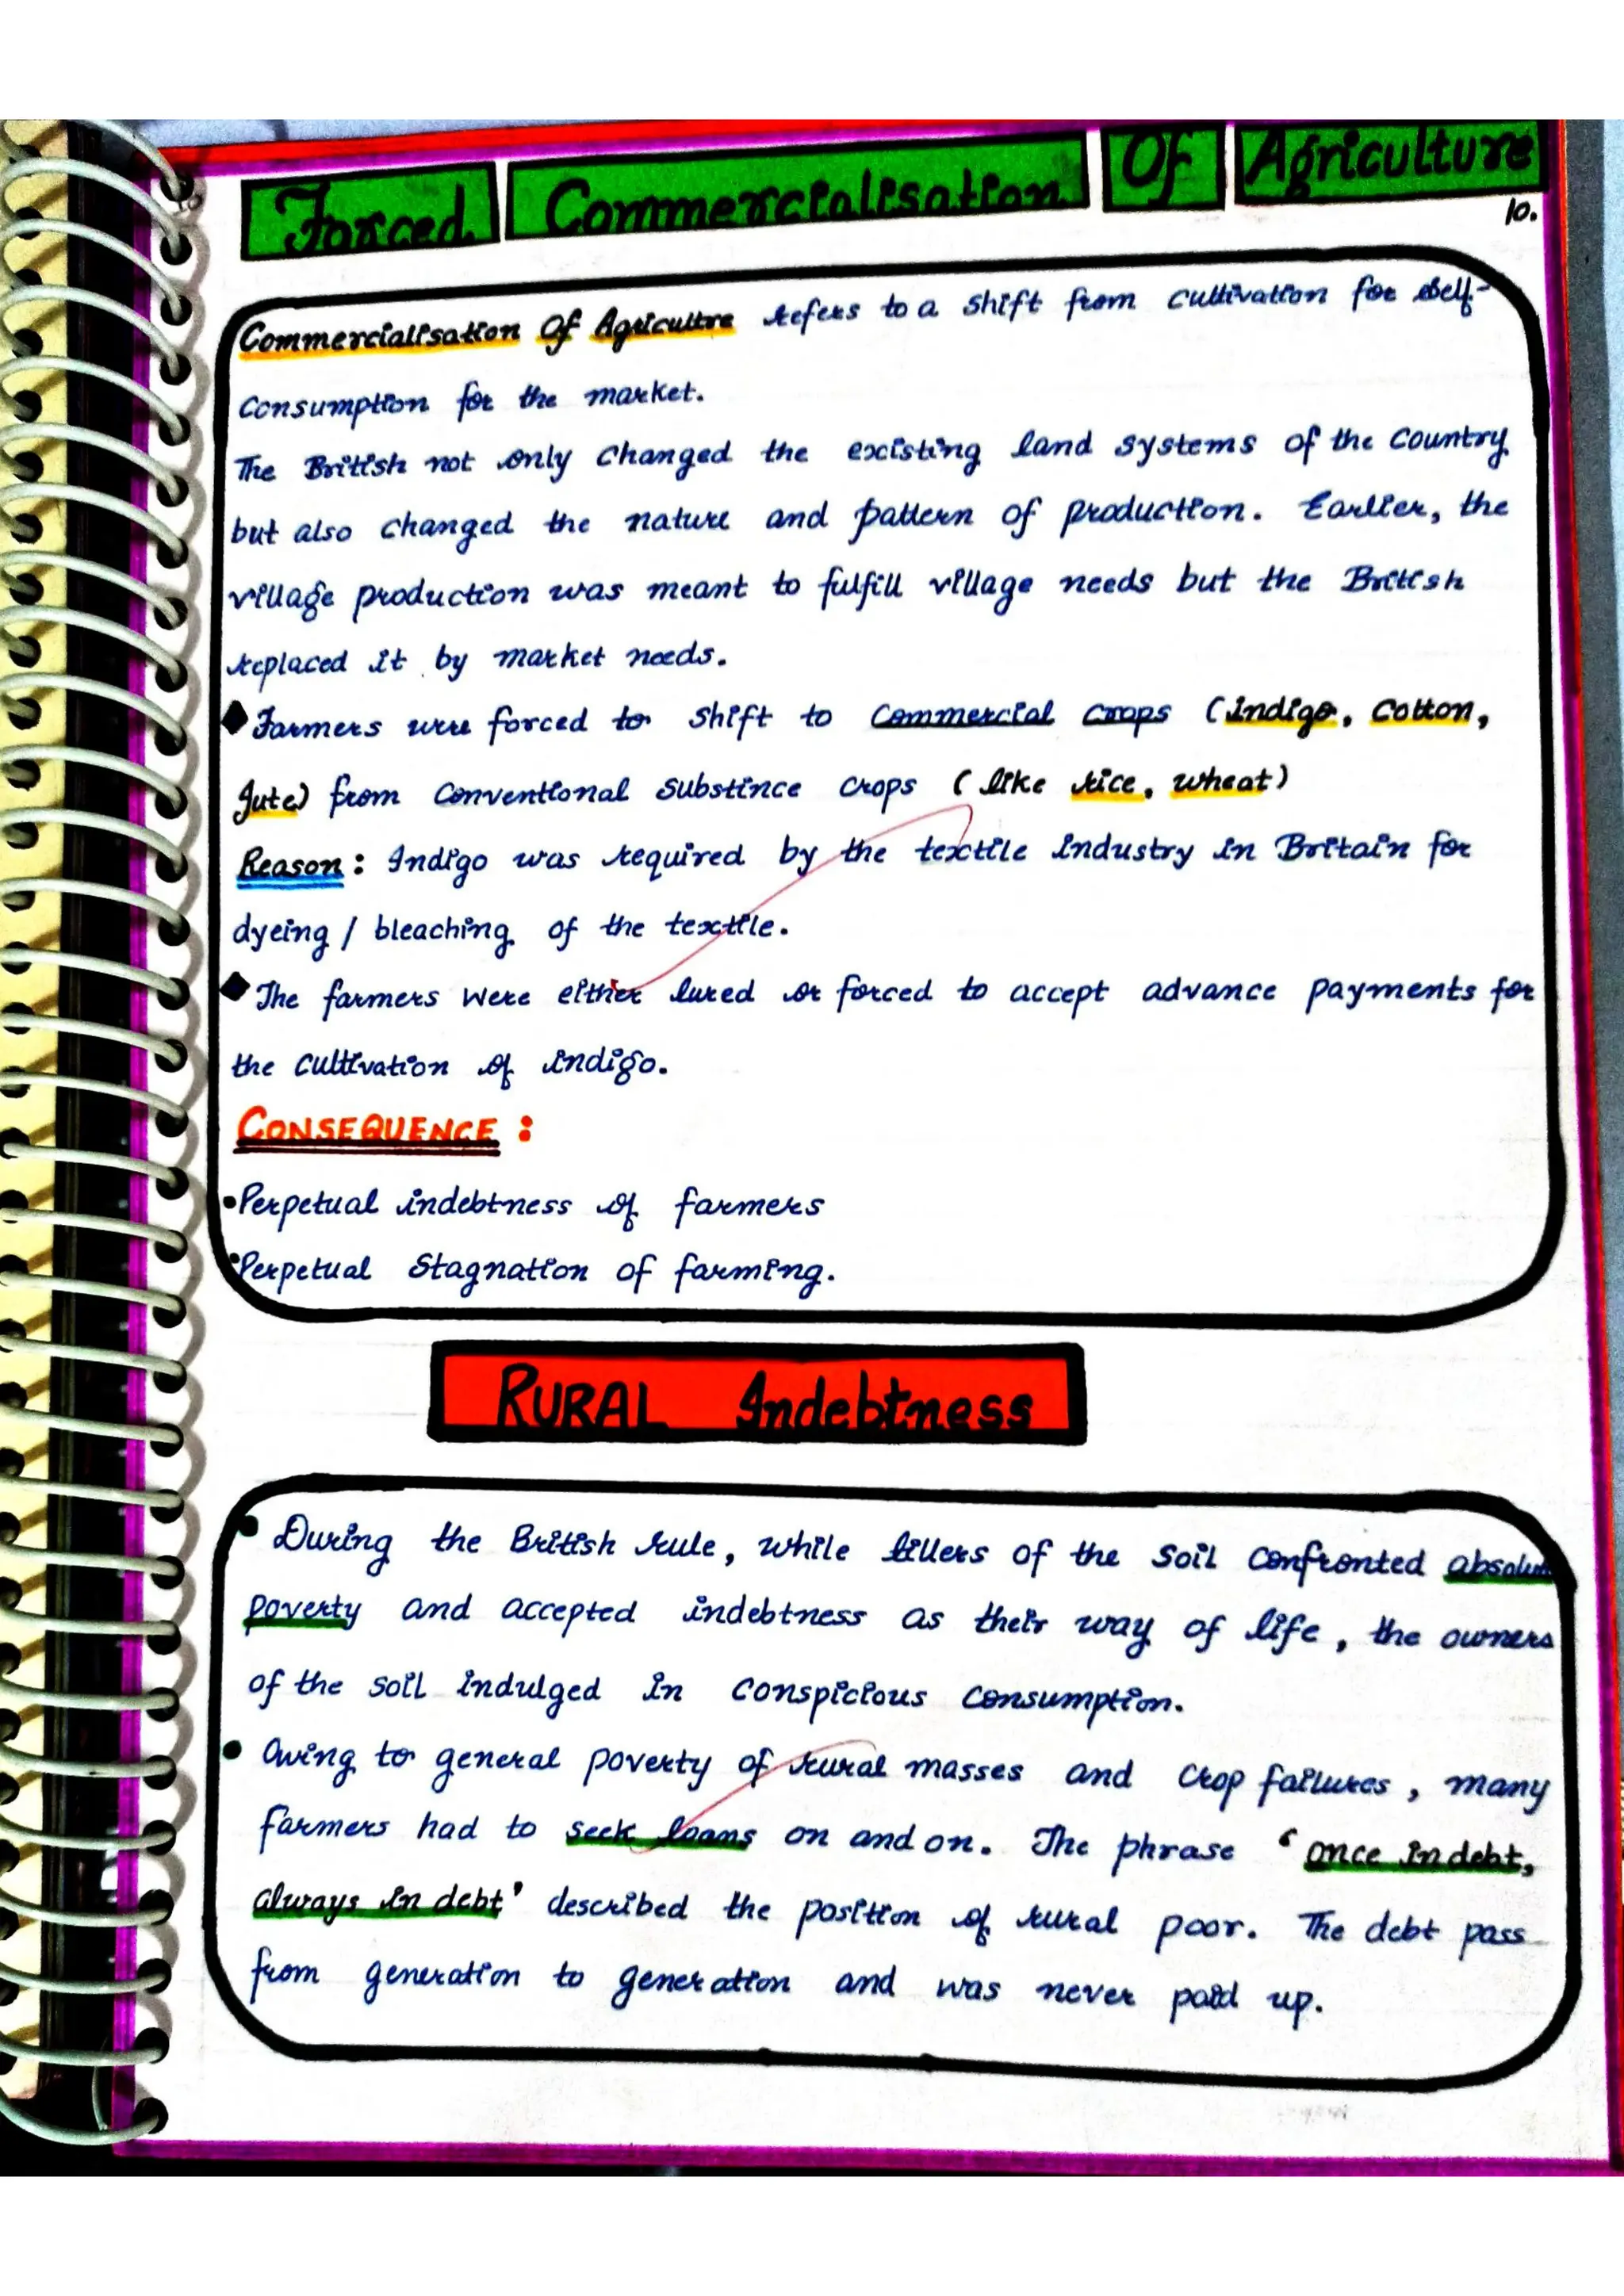 Forced Commercialisation Of Agriculture
10.
Commercialisation Of Agricultre refers to a shift from cultivation for self-
consumption for the market.
The British not only changed the existing land systems of the country
but also changed the nature and pattern of production. Earlier, the
village production was meant to fulfill village needs but the British
replaced it by market needs.
◆ Farmers were forced to shift to commercial crops (indigo, cotton,
jute) from conventional substince crops (like rice, wheat)
Reason: Indigo was required by the textile industry in Britain for
dyeing / bleaching of the textile.
◆ The farmers were either lured or forced to accept advance payments for
the cultivation of indigo.
CONSEQUENCE :
• Perpetual indebtness of farmers
• Perpetual Stagnation of farming.
RURAL Indebtness
• During the British rule, while tillers of the soil confronted absolute
poverty and accepted indebtness as their way of life, the owners
of the soil indulged in conspicious consumption.
• Owing to general poverty of rural masses and crop failures, many
farmers had to seek loans on and on. The phrase ‘once in debt,
always in debt’ described the position of rural poor. The debt pass
from generation to generation and was never paid up.